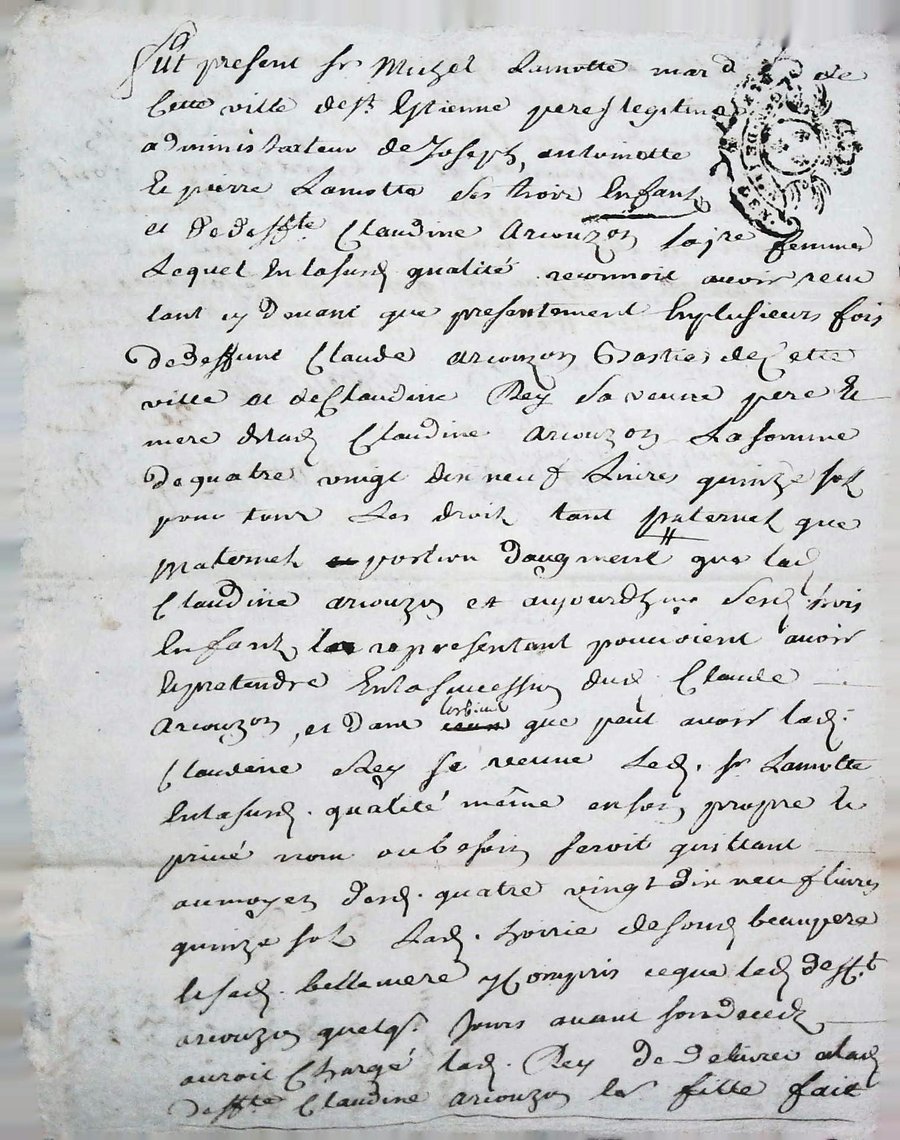 fut present sr Michel Lamotte mard de
Cette ville de st Estienne pere & legitime
administrateur de Joseph, antoinette
& pierre Lamotte ses trois Enfants
et de deffte Claudine Arcouzon sa 1re femme
Lequel En lasusd. qualité reconnoit avoir receu
tant cy devant que presentement En plusieurs fois
de deffunt Claude arcouzon de Cette
ville et de Claudine Rey sa veuve pere &
mere de lad. Claudine arcouzon La somme
de quatre vingt dix neuf Livres quinze sols
pour tous Les droits tant paternels que
maternels portion daugment que lad.
Claudine arcouzon et aujourdhuy sesd. trois
Enfants la representant pouvoient avoir
& pretendre En la succession dud. Claude
arcouzon, et dans les biens que peut avoir lad.
Claudine Rey sa veuve Led. sr Lamotte
En lasusd. qualité même en son propre &
privé nom au besoin seroit quittant
au moyen desd. quatre vingt dix neuf livres
quinze sols Lad. hoirie de sond. beaupere
& sad. bellemere y Compris ce que lad. deffte
arcouzon quelqs. Jours avant son decedz
auroit Chargé lad. Rey de delivrer alad.
deffte Claudine arcouzon sa fille fait